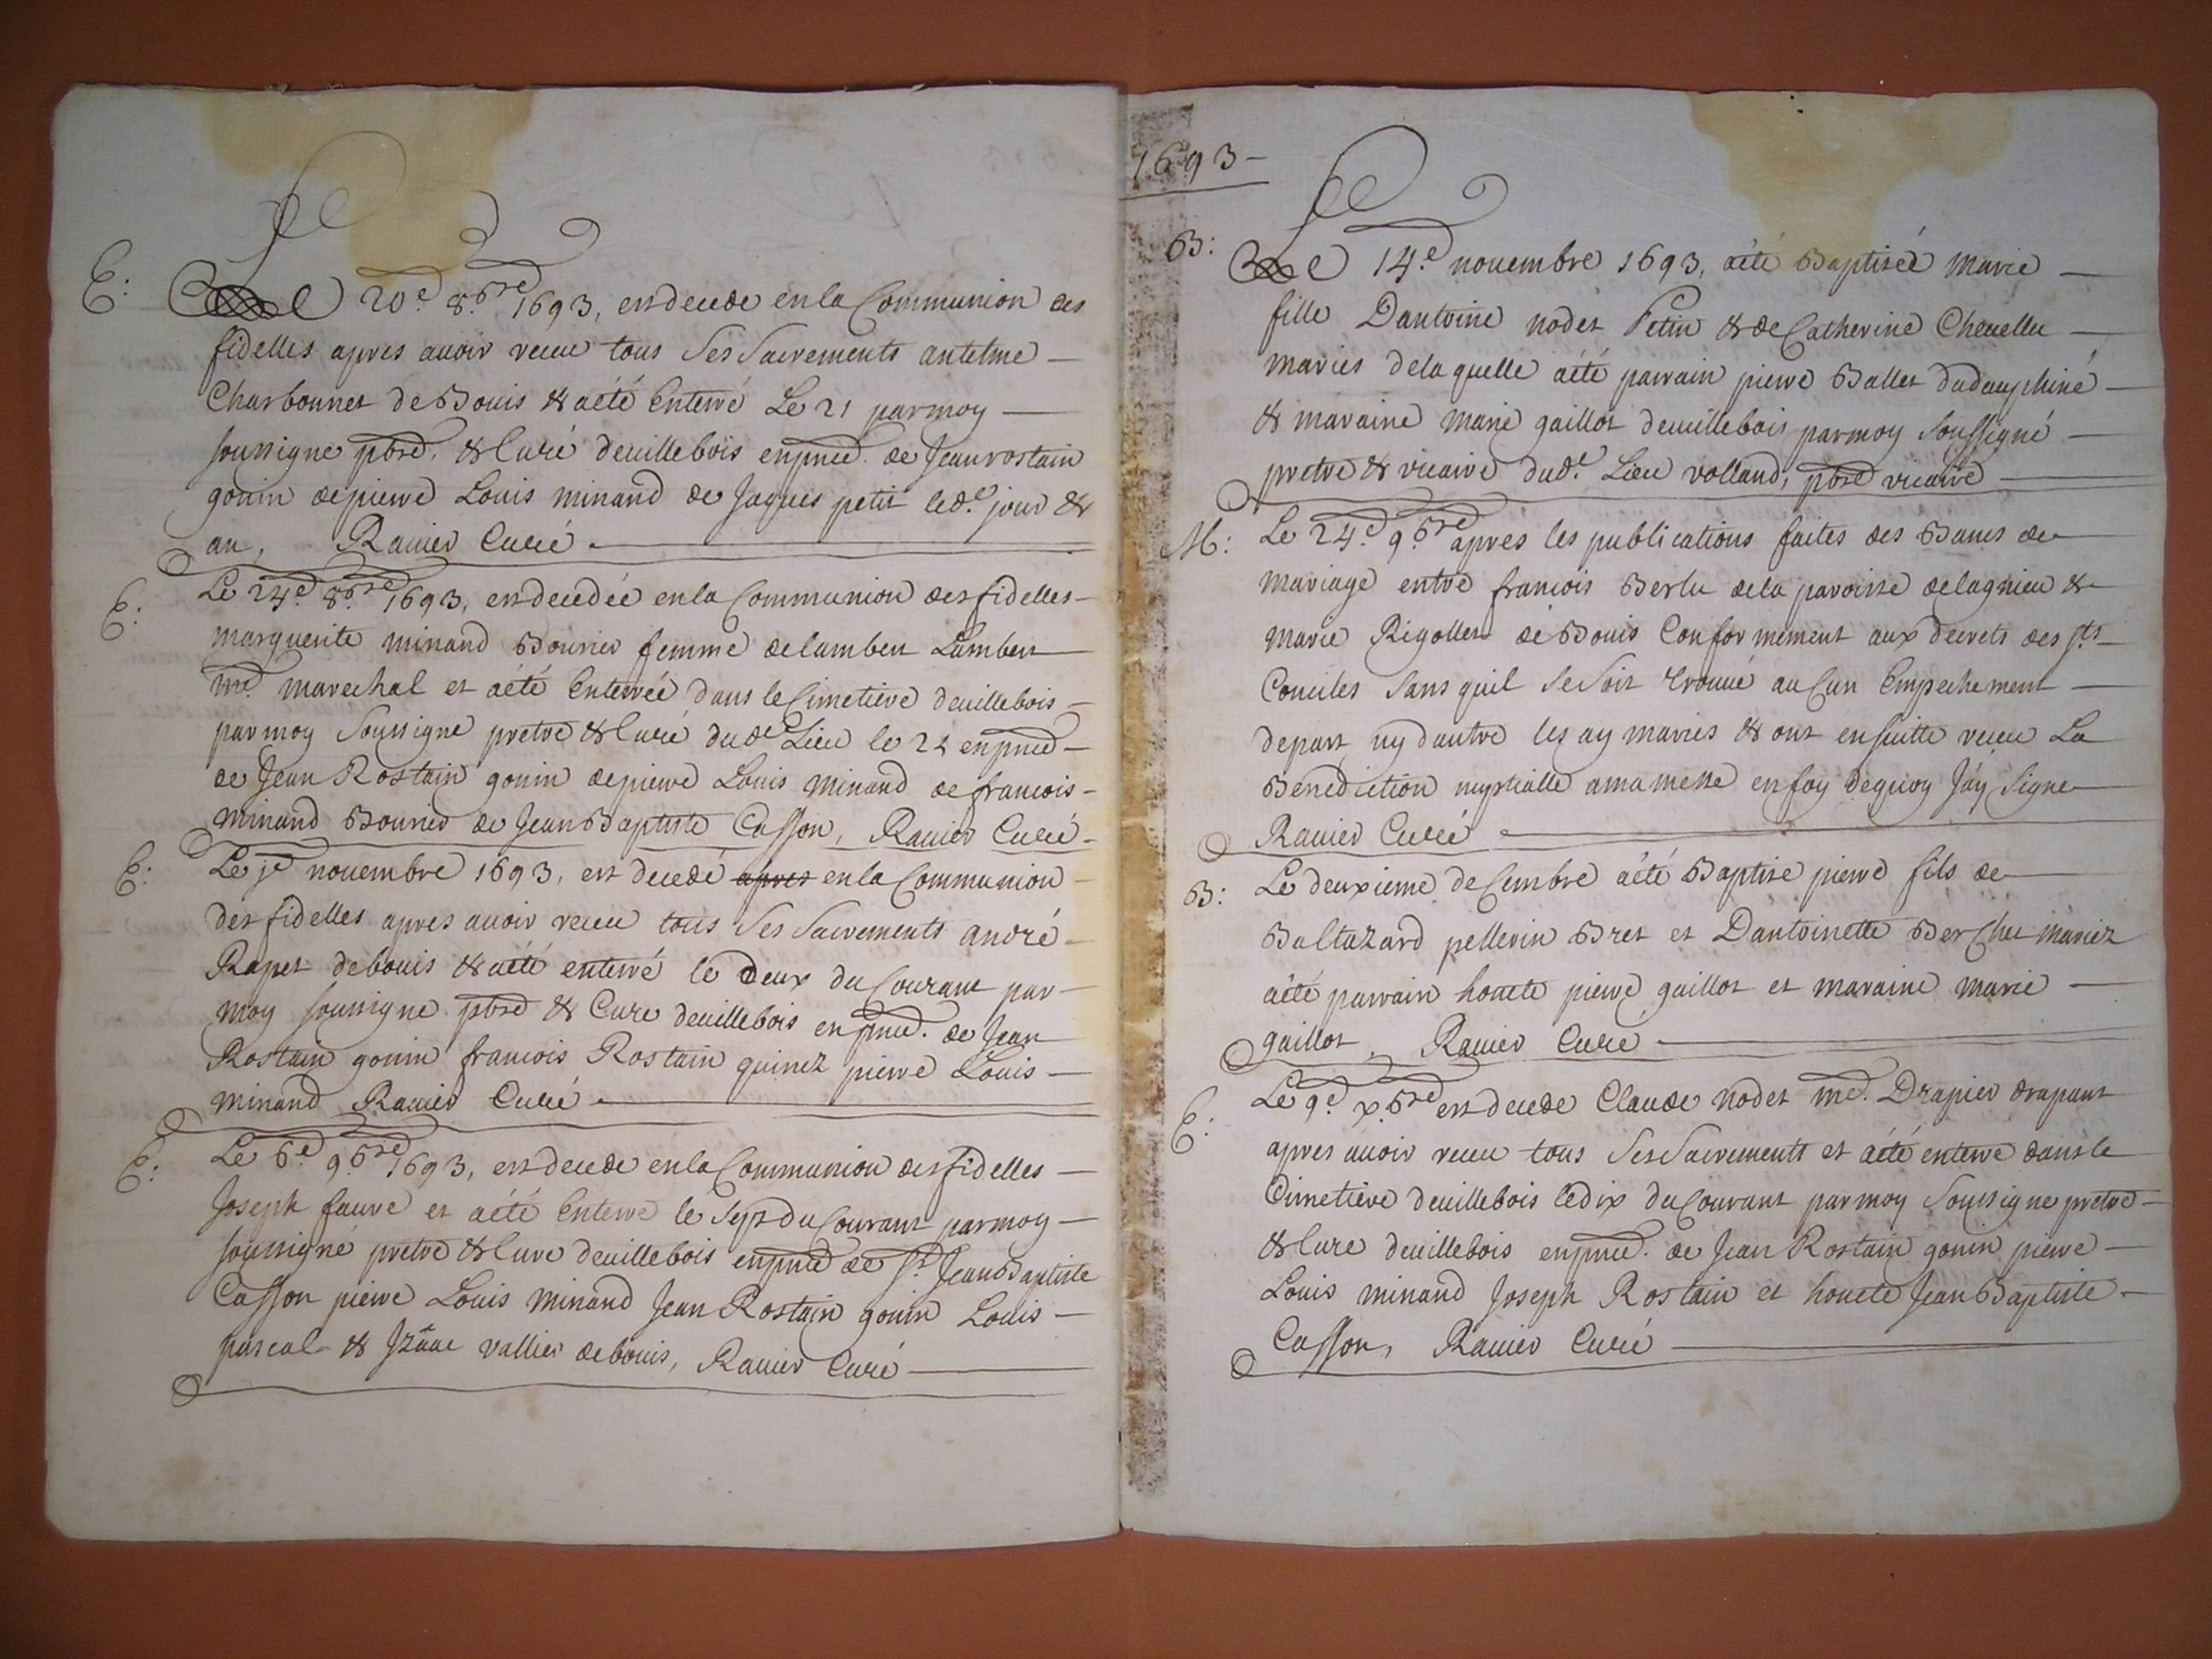 E: Le 20e 8bre 1693, est decede en la Communion des
fidelles apres auoir receu tous Ses Sacrements antelme
Charbonnet de Bouis & a été Enterré Le 21 par moy
soussigne pbre. & Curé de uillebois en pnce. de Jean rostain
gonin de pierre Louis minand de Jaques petit led.t jour &
an, Rauier Curé
E: Le 24e 8bre 1693, est decedée en la Communion des fidelles
marguerite minand Bourier femme de lambert Lambert
md. marechal et a été Enterrée dans le Cimetiere de uillebois
par moy Soussigne pretre & Curé dud.t Lieu le 25 en pnce
de Jean Rostain gonin de pierre Louis minand de francois
minand Bourier de Jean Baptiste Casson, Rauier Curé
E: Le je nouembre 1693, est decedé apres en la Communion
des fidelles apres auoir receu tous Ses Sacrements andré
Rapet de bouis & a été enterré le Deux du Courant par
moy soussigne pbre & Cure de uillebois en pnce. de Jean
Rostain gonin francois Rostain guinez pierre Louis
minand Rauier Curé
E: Le 6e 9bre 1693, est decede en la Communion des fidelles
Joseph faure et a été Enterre le Sept du Courant par moy
soussigné pretre & Cure de uillebois en pnce de Sr. Jean Baptiste
Casson pierre Louis minand Jean Rostain gonin Louis
pascal & Jzâac vallier de bouis, Rauier Curé
1693
B: Le 14.e nouembre 1693, a été Baptisée marie
fille D'antoine nodet Petin & de Catherine Cheuellu
maries de laquelle a été parrain pierre Ballet du dauphiné
& maraine marie gaillot de uillebois par moy Soussigné
pretre & vicaire dud.t Lieu volland, pbre vicaire
M: Le 24e 9bre apres les publications faites des Bancs de
mariage entre francois Berlu de la paroisse de lagnieu &
marie Rigollet de Bouis Conformement aux decrets des Sts
Conciles Sans quil Se Soit trouué auCun Empechement
de part ny dautre les ay maries & ont ensuitte receu La
Benediction nuptialle a ma messe en foy de quoy J'ay Signe
Rauier Curé
B: Le deuxieme deCembre a été Baptise pierre fils de
Baltazard pellerin Bret et D'antoinette Berchet mariez
a été parrain honete pierre gaillot et maraine marie
gaillot, Rauier Cure
E: Le 9e xbre est decede Claude nodet md. Drapier drapant
apres auoir receu tous Ses Sacrements et a été enterre dans le
Cimetiere de uillebois le dix du Courant par moy Soussigne pretre
& Cure de uillebois en pnce. de Jean Rostain gonin pierre
Louis minand Joseph Rostain et honete Jean Baptiste
Casson, Rauier Curé